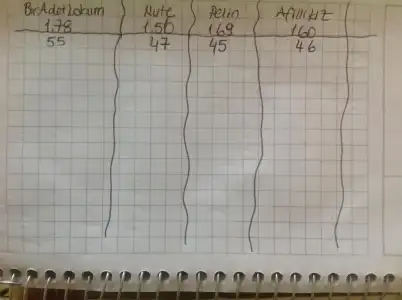 BirAdetLokum Nute Pelin Afilli kız
1.78 1.50 1.69 1.60
55 47 45 46